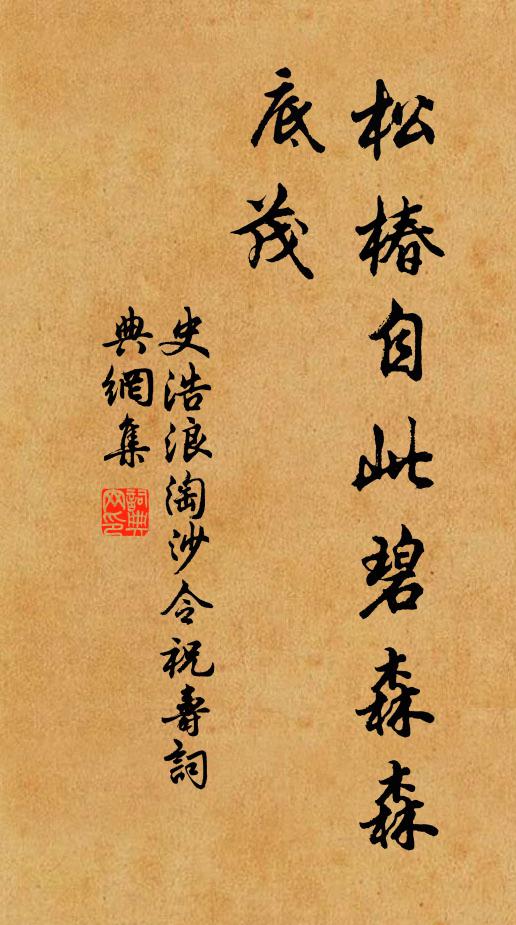 松椿自此碧森森
底茂
史浩浪淘沙令祝壽詞
典網集
詞典
网印